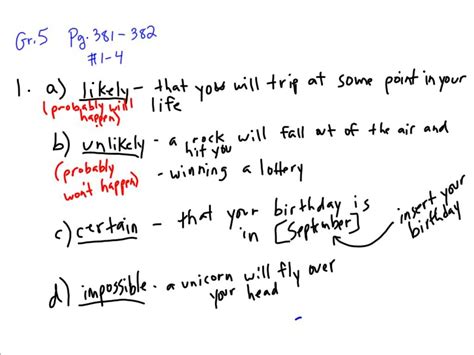 Gr.5 Pg.381-382
#1-4
1. a) likely - that you will trip at some point in your
(probably will happen) life
b) unlikely - a rock will fall out of the air and
hit you
(probably won't happen) - winning a lottery
c) certain - that your birthday is
in [September] insert your birthday
d) impossible - a unicorn will fly over
your head